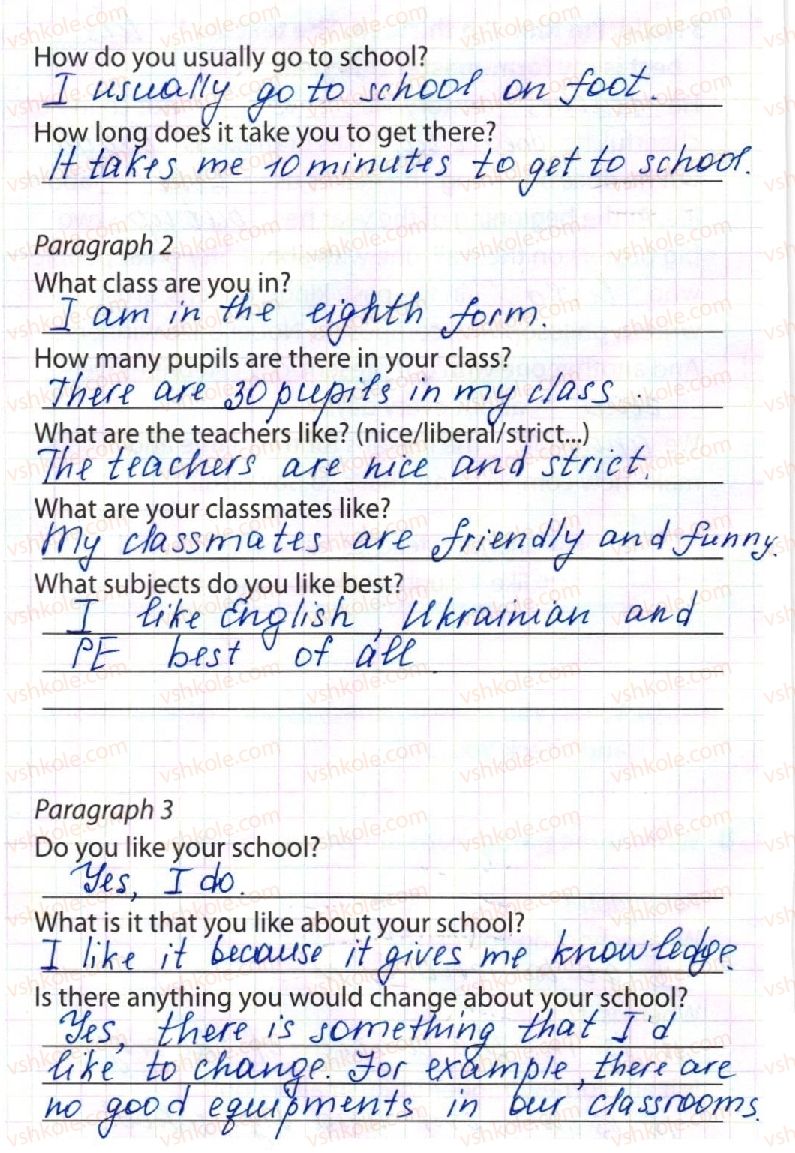 How do you usually go to school?
I usually go to school on foot.
How long does it take you to get there?
It takes me 10 minutes to get to school.
Paragraph 2
What class are you in?
I am in the eighth form.
How many pupils are there in your class?
There are 30 pupils in my class.
What are the teachers like? (nice/liberal/strict...)
The teachers are nice and strict.
What are your classmates like?
My classmates are friendly and funny.
What subjects do you like best?
I like English, Ukrainian and
PE best of all.
Paragraph 3
Do you like your school?
Yes, I do.
What is it that you like about your school?
I like it because it gives me knowledge.
Is there anything you would change about your school?
Yes, there is something that I'd
like to change. For example, there are
no good equipments in our classrooms.
vshkole.com